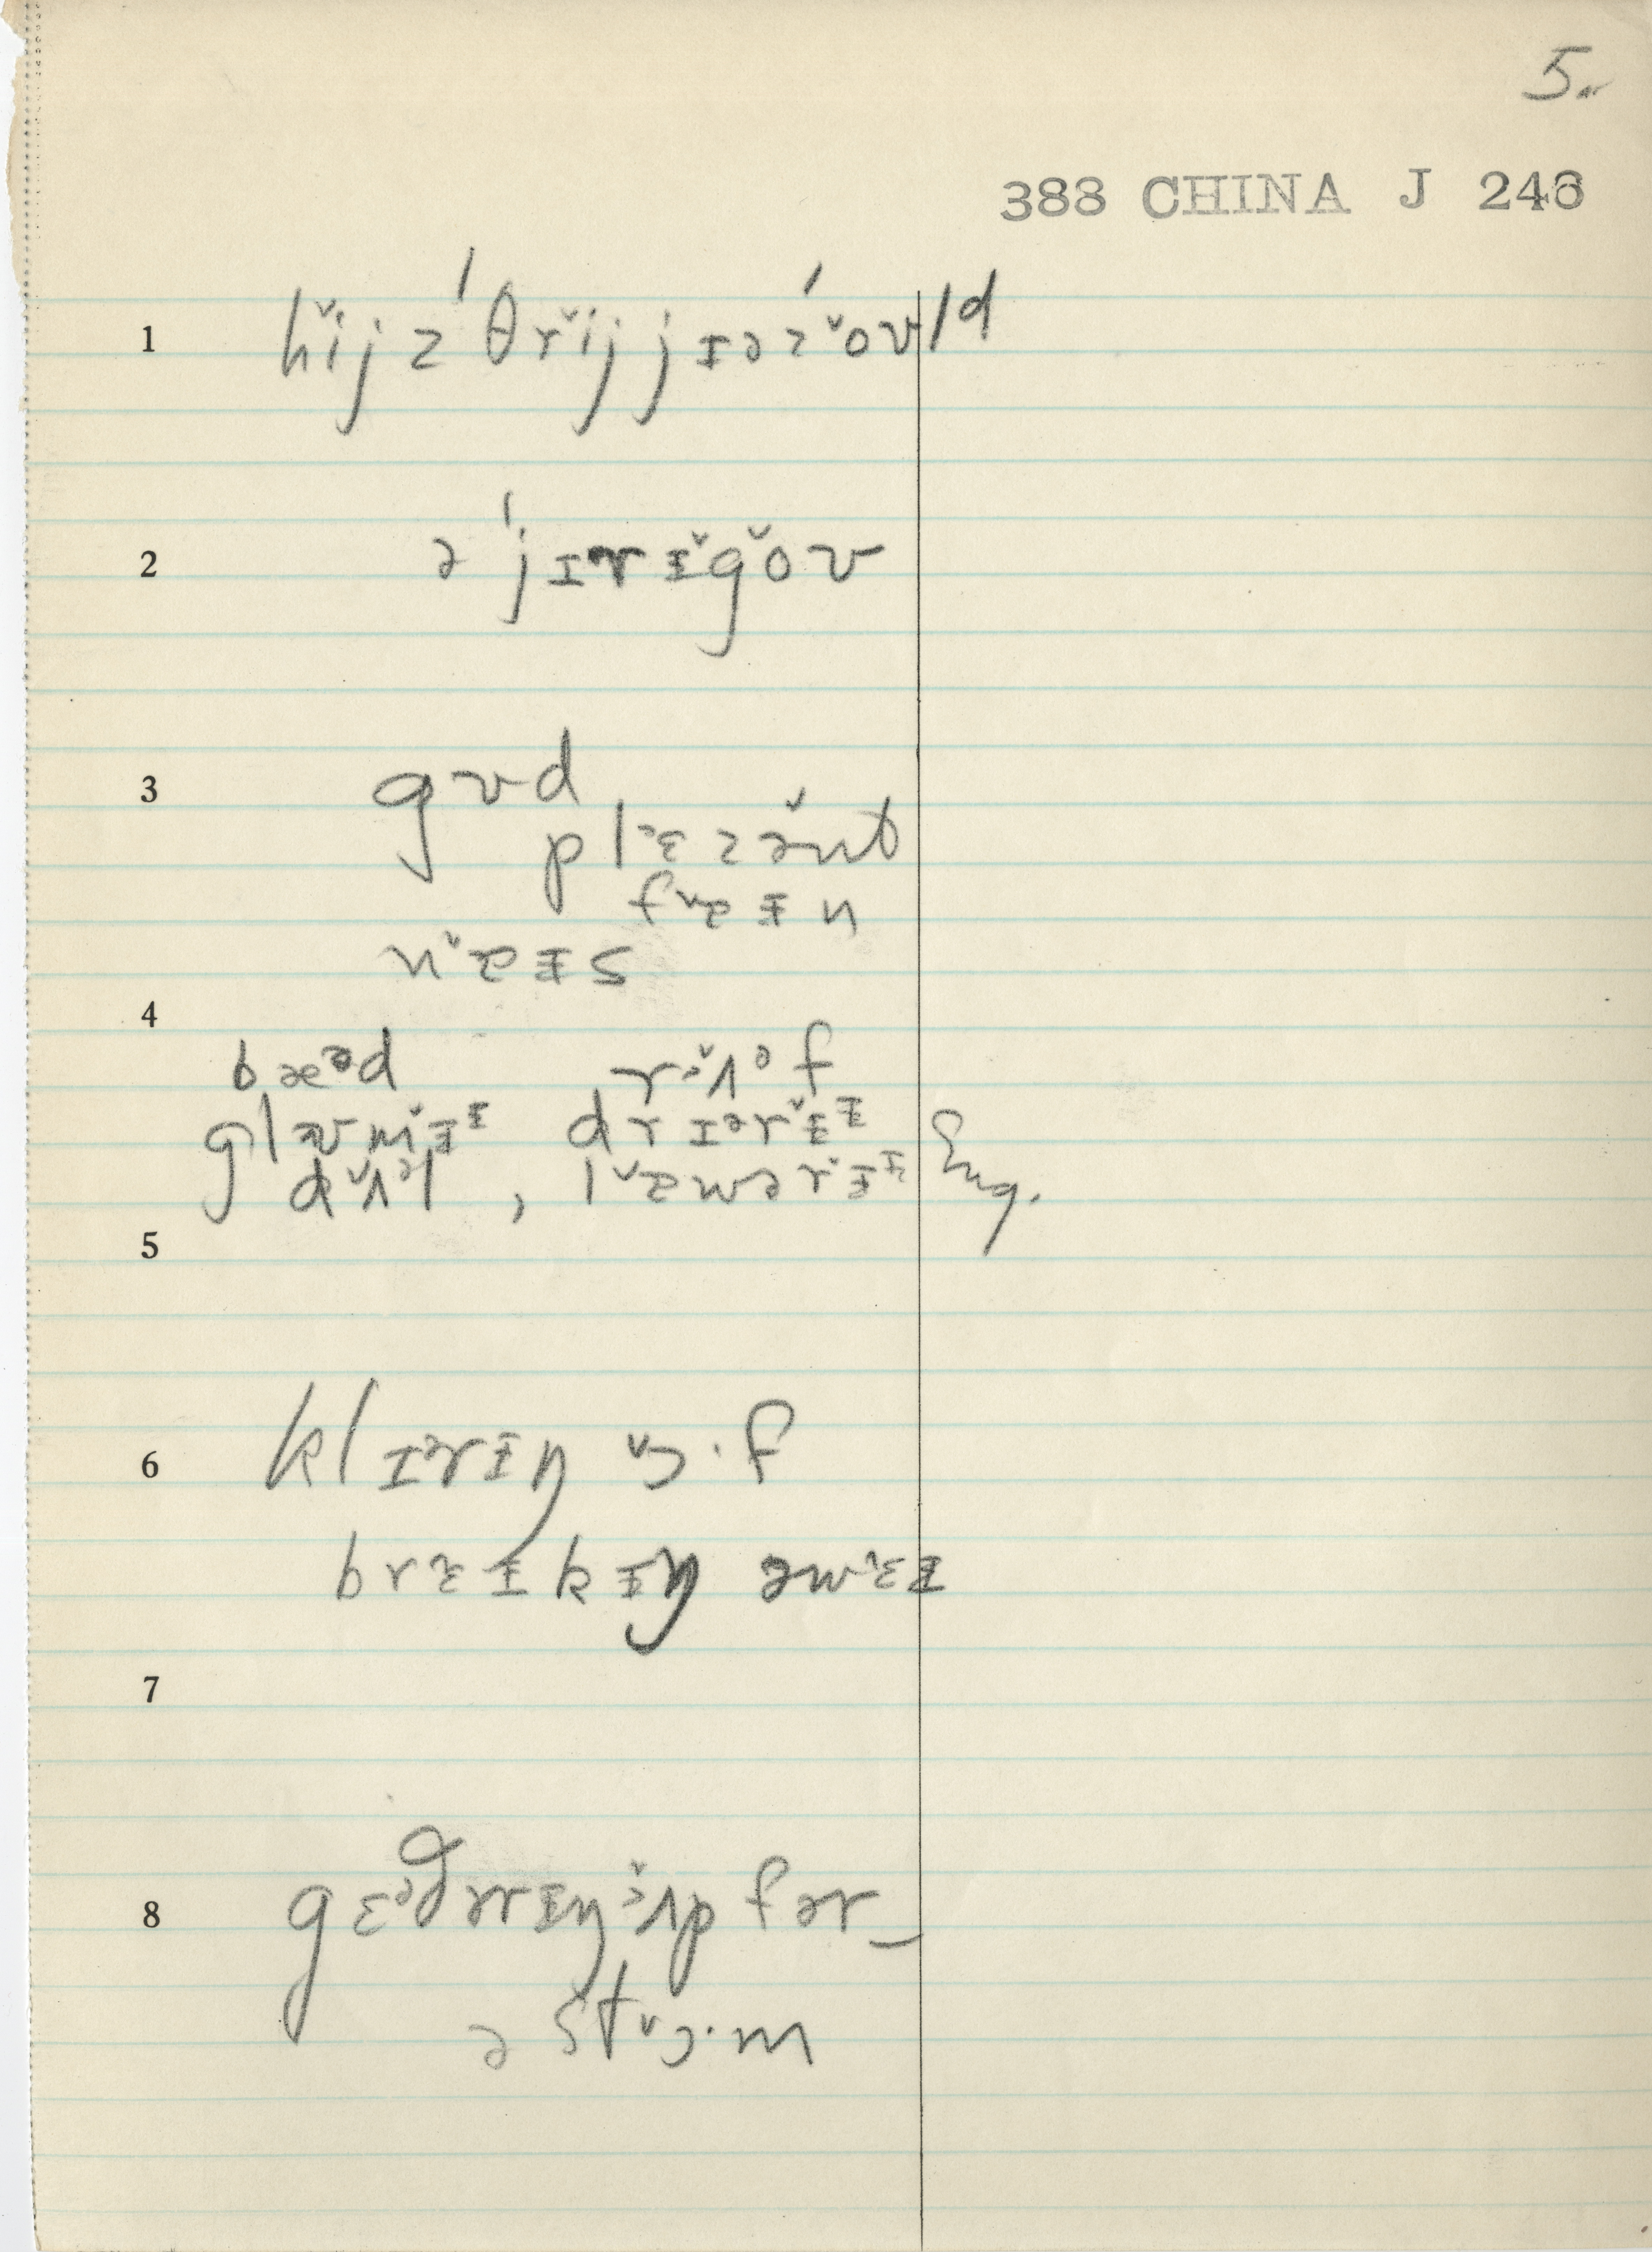 5.
388 CHINA J 246
1 hǐjz ˈθrǐj jɪəz ˈǒʊld
2 ə ˈjɪrɪ̵̌gǒʊ
3 gʊd
plᵊɛzə̌nt
fᵊɐɪ̵n
nᵊɐɪ̵s
4
bæᵊd rᵊʌ̌ᵊf
glʊmɪ̵̌ᶤ, drɪərɪ̵̌ᶤ
dʌ̌ᵊl, lɐ̌wərɪ̵̌ᶤ Eng.
5
6 klɪərɪ̵ŋ ɔ̌·f
brɛɪ̵kɪ̵ŋ əwɛ̌ɪ̵
7
8 gɛᵊðərɪ̵ŋ ᵊʌ̌p fər
ə stɔ̌·m